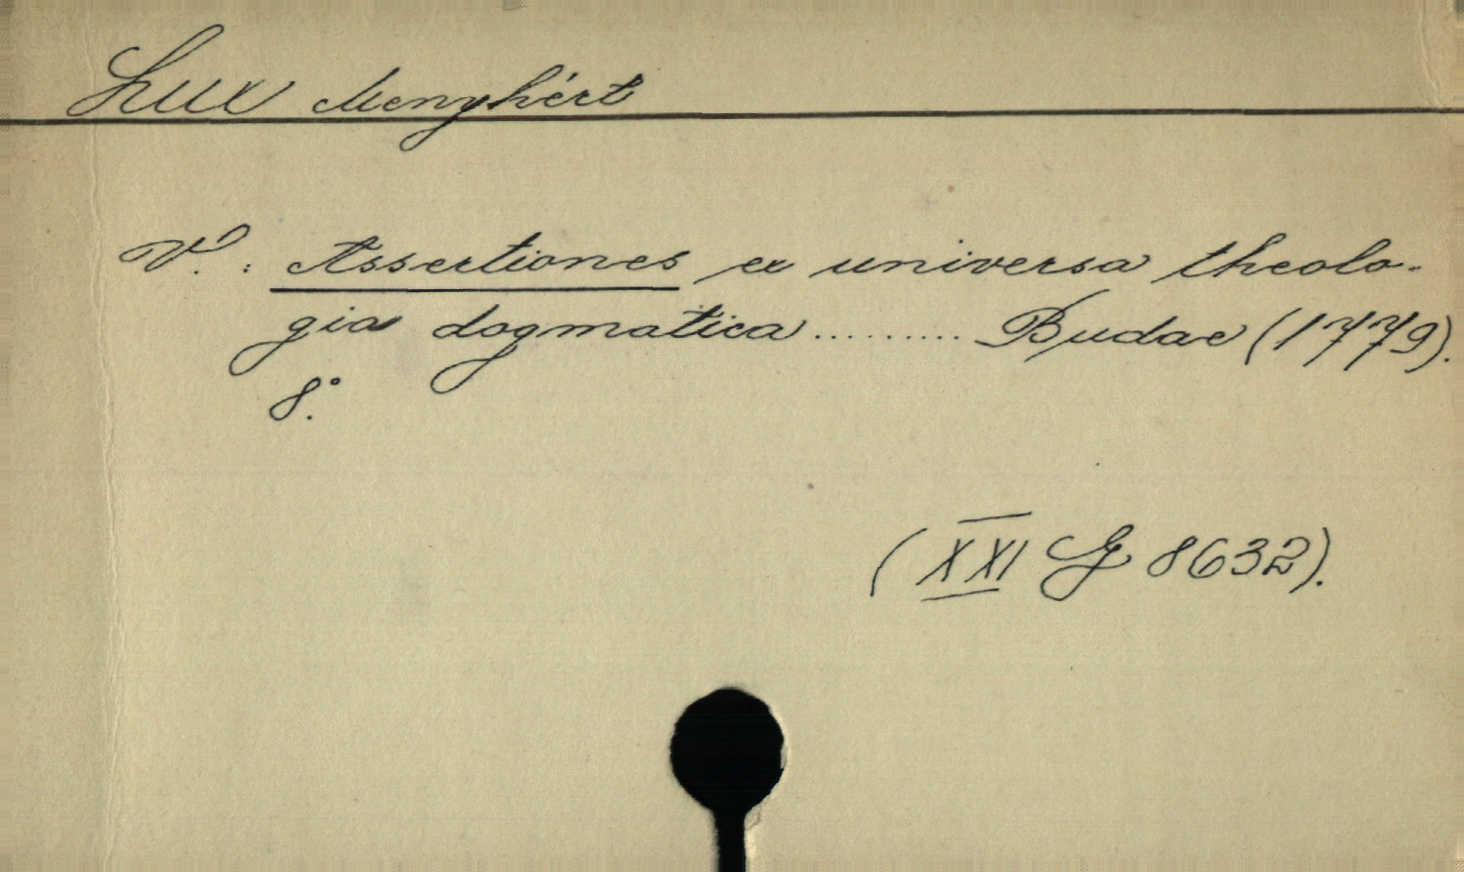 Lux Menyhért
Vº. : Assertiones ex universa theolo-
gia dogmatica ......... Budae (1779).
8.º
(XXI G 8632).